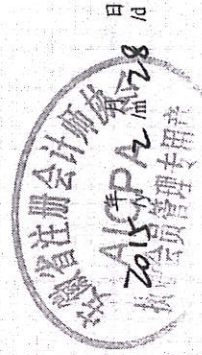 安徽省注册会计师协会
AICPA
2015年 2月 28日
/m /d
会员管理专用章